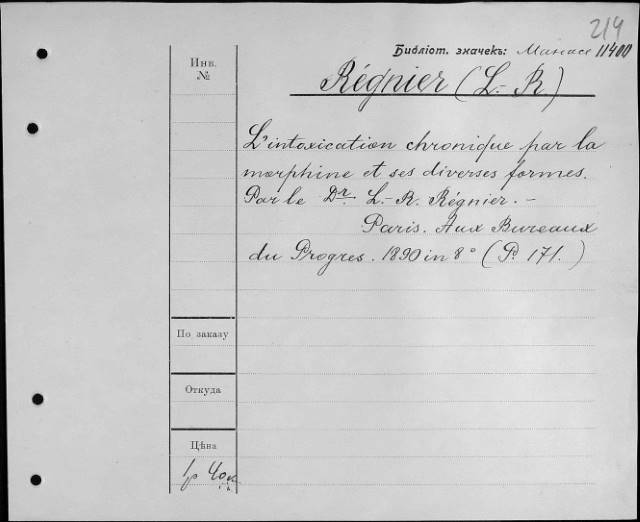 219
Библіот. значекъ: Манасс 11400
Инв.
№
Régnier (L.-R.)
L'intoxication chronique par la
morphine et ses diverses formes.
Par le Dr. L.-R. Régnier. –
Paris. Aux Bureaux
du Progres. 1890 in 8° (P. 171.)
По заказу
Откуда
Цѣна
1р 40к